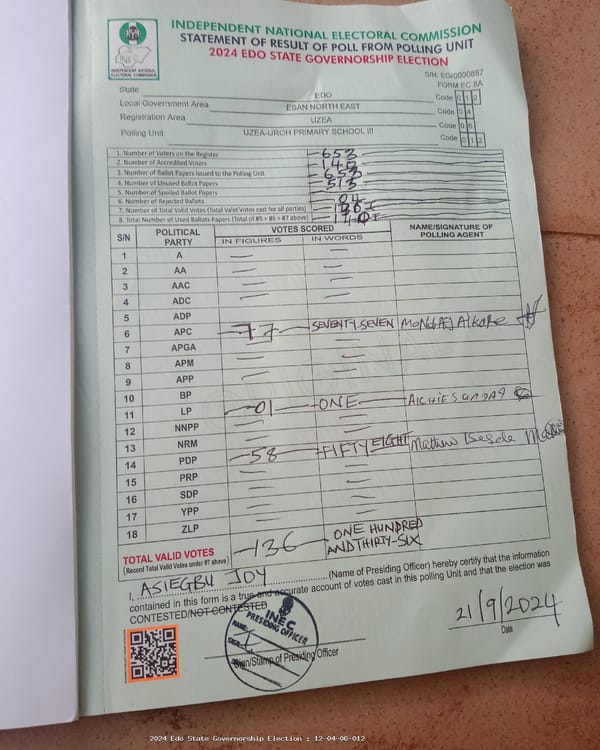 INDEPENDENT NATIONAL ELECTORAL COMMISSION
STATEMENT OF RESULT OF POLL FROM POLLING UNIT
2024 EDO STATE GOVERNORSHIP ELECTION
INEC
INDEPENDENT NATIONAL ELECTORAL COMMISSION
S/N: EG/0000887
FORM EC 8A
State EDO Code 1 2
Local Government Area ESAN NORTH EAST Code 0 4
Registration Area UZEA Code 0 6
Polling Unit UZEA-UROH PRIMARY SCHOOL III Code 0 1 2
1. Number of Voters on the Register 653
2. Number of Accredited Voters 140
3. Number of Ballot Papers Issued to the Polling Unit 653
4. Number of Unused Ballot Papers 513
5. Number of Spoiled Ballot Papers
6. Number of Rejected Ballots 04
7. Number of Total Valid Votes (Total Valid Votes cast for all parties) 136
8. Total Number of Used Ballots Papers (Total of #5 + #6 + #7 above) 140
S/N POLITICAL PARTY VOTES SCORED NAME/SIGNATURE OF POLLING AGENT
IN FIGURES IN WORDS
1 A
2 AA
3 AAC
4 ADC
5 ADP
6 APC 77 SEVENTY-SEVEN
7 APGA
8 APM
9 APP
10 BP
11 LP 01 ONE
12 NNPP
13 NRM
14 PDP 58 FIFTY EIGHT Matthew
15 PRP
16 SDP
17 YPP
18 ZLP
TOTAL VALID VOTES 136 ONE HUNDRED AND THIRTY-SIX
(Record Total Valid Votes under #7 above)
I, ASIEGBU JOY (Name of Presiding Officer) hereby certify that the information
contained in this form is a true and accurate account of votes cast in this polling Unit and that the election was
CONTESTED/NOT CONTESTED
INEC
PRESIDING OFFICER
NAME:
SIGN:
Sign/Stamp of Presiding Officer
21/9/2024
Date
2024 Edo State Governorship Election : 12-04-06-012